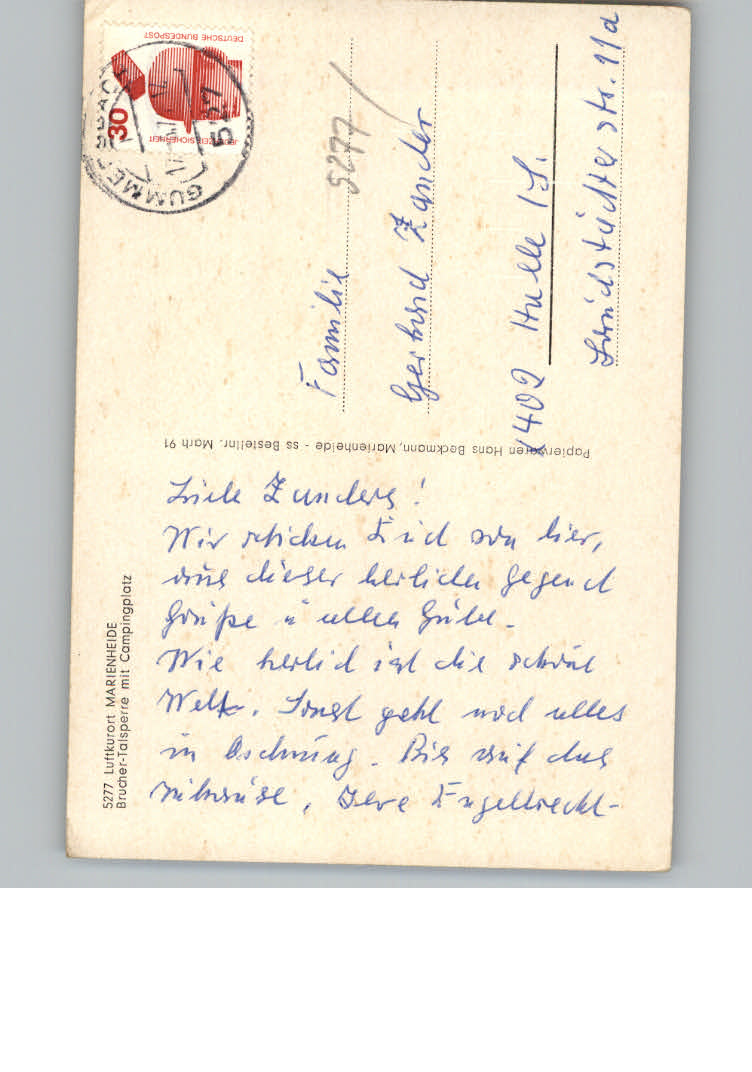 5277 Luftkurort MARIENHEIDE
Brucher-Talsperre mit Campingplatz
Liebe Zanders!
Wir schicken Euch von hier,
aus dieser herlichen Gegend
Grüße u alles Gute.
Wie herlich ist die schöne
Welt. Sonst geht noch alles
in Ordnung. Bis auf das
zuhause. Ihre Engelbrecht
Papierwaren Hans Beckmann, Marienheide - ss Bestellnr. Marh 91
DEUTSCHE BUNDESPOST
JEDERZEIT SICHERHEIT
30
GUMMERSBACH
527
5277
Familie
Gerhard Zander
402 Halle /S.
Lauchstädterstr. 11a